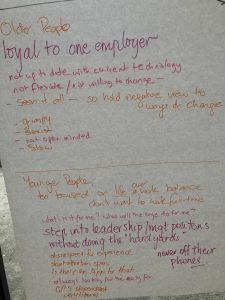 Older People
loyal to one employer
not up to date with current technology
not flexible / not willing to change -
- Seen it all - so hold negative view to
ways or change
- grumpy
- not open minded
- Slow
Younger People
too focused on life over balance
don't want to work full-time
what's in it for me? What will the org do for me?
step into leadership / mgt positions
without doing the "hard yards"
disrespect for experience
short attention span
Is there an App for that
always looking for the easy fix
GPS dependent
never off their
phones